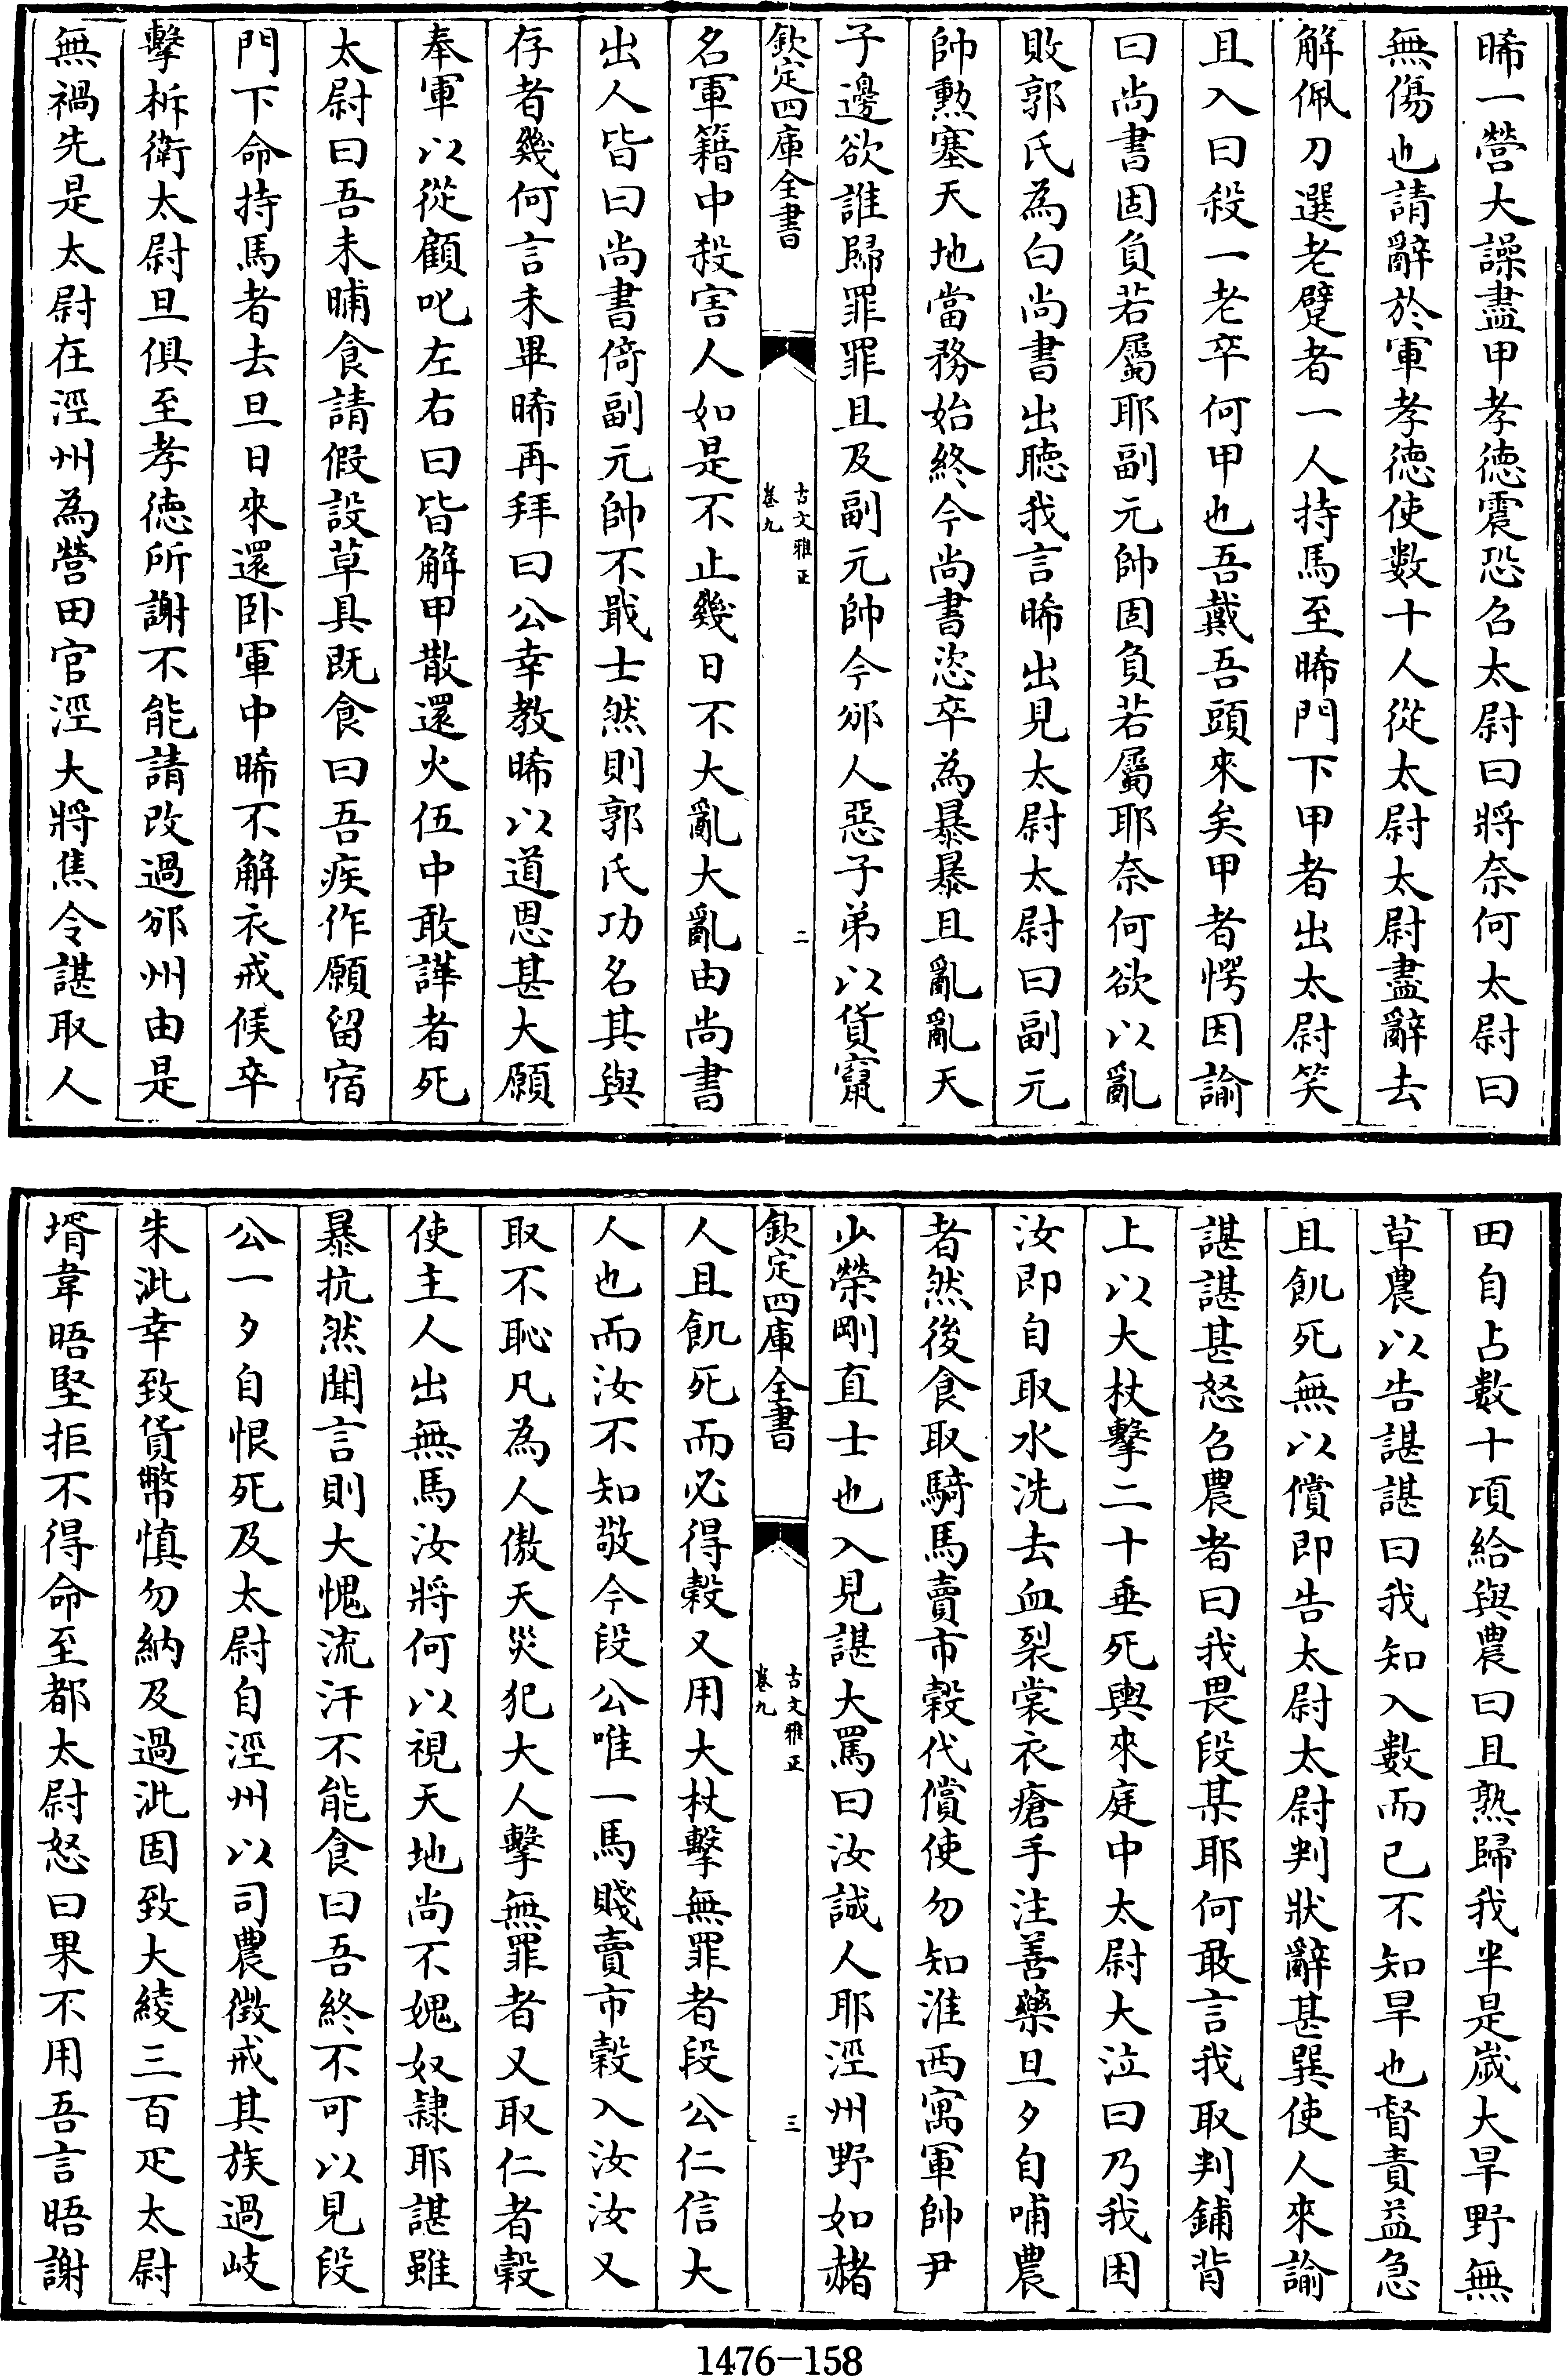 晞一營大譟盡甲孝徳震恐召太尉曰將奈何太尉曰
無傷也請辭於軍孝徳使数十人從太尉太尉盡辭去
解佩刀選老躄者一人持馬至晞門下甲者出太尉笑
且入曰殺一老卒何甲也吾戴吾頭來矣甲者愕因諭
曰尚書固負若屬耶副元帥固負若屬耶奈何欲以亂
敗郭氏為白尚書出聴我言晞出見太尉太尉曰副元
帥勲塞天地當務始終今尚書恣卒為暴暴且亂亂天
子邊欲誰歸罪罪且及副元帥今邠人惡子弟以貨竄
欽定四庫全書
古文雅正
卷九
二
名軍籍中殺害人如是不止幾日不大亂大亂由尚書
出人皆曰尚書倚副元帥不戢士然則郭氏功名其與
存者幾何言未畢晞再拜曰公幸教晞以道恩甚大願
奉軍以從顧叱左右曰皆解甲散還火伍中敢譁者死
太尉曰吾未晡食請假設草具既食曰吾疾作願留宿
門下命持馬者去旦日來還卧軍中晞不解衣戒候卒
擊柝衛太尉旦俱至孝徳所謝不能請改過邠州由是
無禍先是太尉在涇州為營田官涇大將焦令諶取人
田自占数十頃給與農曰且熟歸我半是歲大旱野無
草農以告諶諶曰我知入數而已不知旱也督責益急
且飢死無以償即告太尉太尉判狀辭甚巽使人來諭
諶諶甚怒召農者曰我畏段某耶何敢言我取判鋪背
上以大杖擊二十垂死輿來庭中太尉大泣曰乃我困
汝即自取水洗去血裂裳衣瘡手注善藥旦夕自哺農
者然後食取騎馬賣市穀代償使勿知淮西寓軍帥尹
少榮剛直士也入見諶大罵曰汝誠人耶涇州野如赭
欽定四庫全書
古文雅正
卷九
三
人且飢死而必得穀又用大杖擊無罪者段公仁信大
人也而汝不知敬今段公唯一馬賤賣市穀入汝汝又
取不恥凡為人傲天災犯大人擊無罪者又取仁者穀
使主人出無馬汝將何以視天地尚不媿奴隸耶諶雖
暴抗然聞言則大愧流汗不能食曰吾終不可以見段
公一夕自恨死及太尉自涇州以司農徵戒其族過岐
朱泚幸致貨幣慎勿納及過泚固致大綾三百疋太尉
壻韋晤堅拒不得命至都太尉怒曰果不用吾言晤謝
1476-158